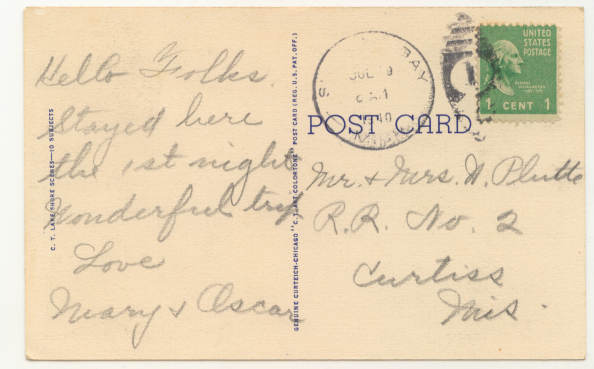 Hello Folks.
Stayed here
the 1st night
Wonderful trip
Love
Mary & Oscar
C. T. LAKE SHORE SCENES—10 SUBJECTS
GENUINE CURTEICH-CHICAGO "C. T. LAKE COLORTONE" POST CARD (REG. U. S. PAT. OFF.)
BAY
JUL 9
1940
UNITED
STATES
POSTAGE
1 CENT 1
POST CARD
Mr. & Mrs. W. Plutte
R.R. No. 2
Curtiss
Wis.